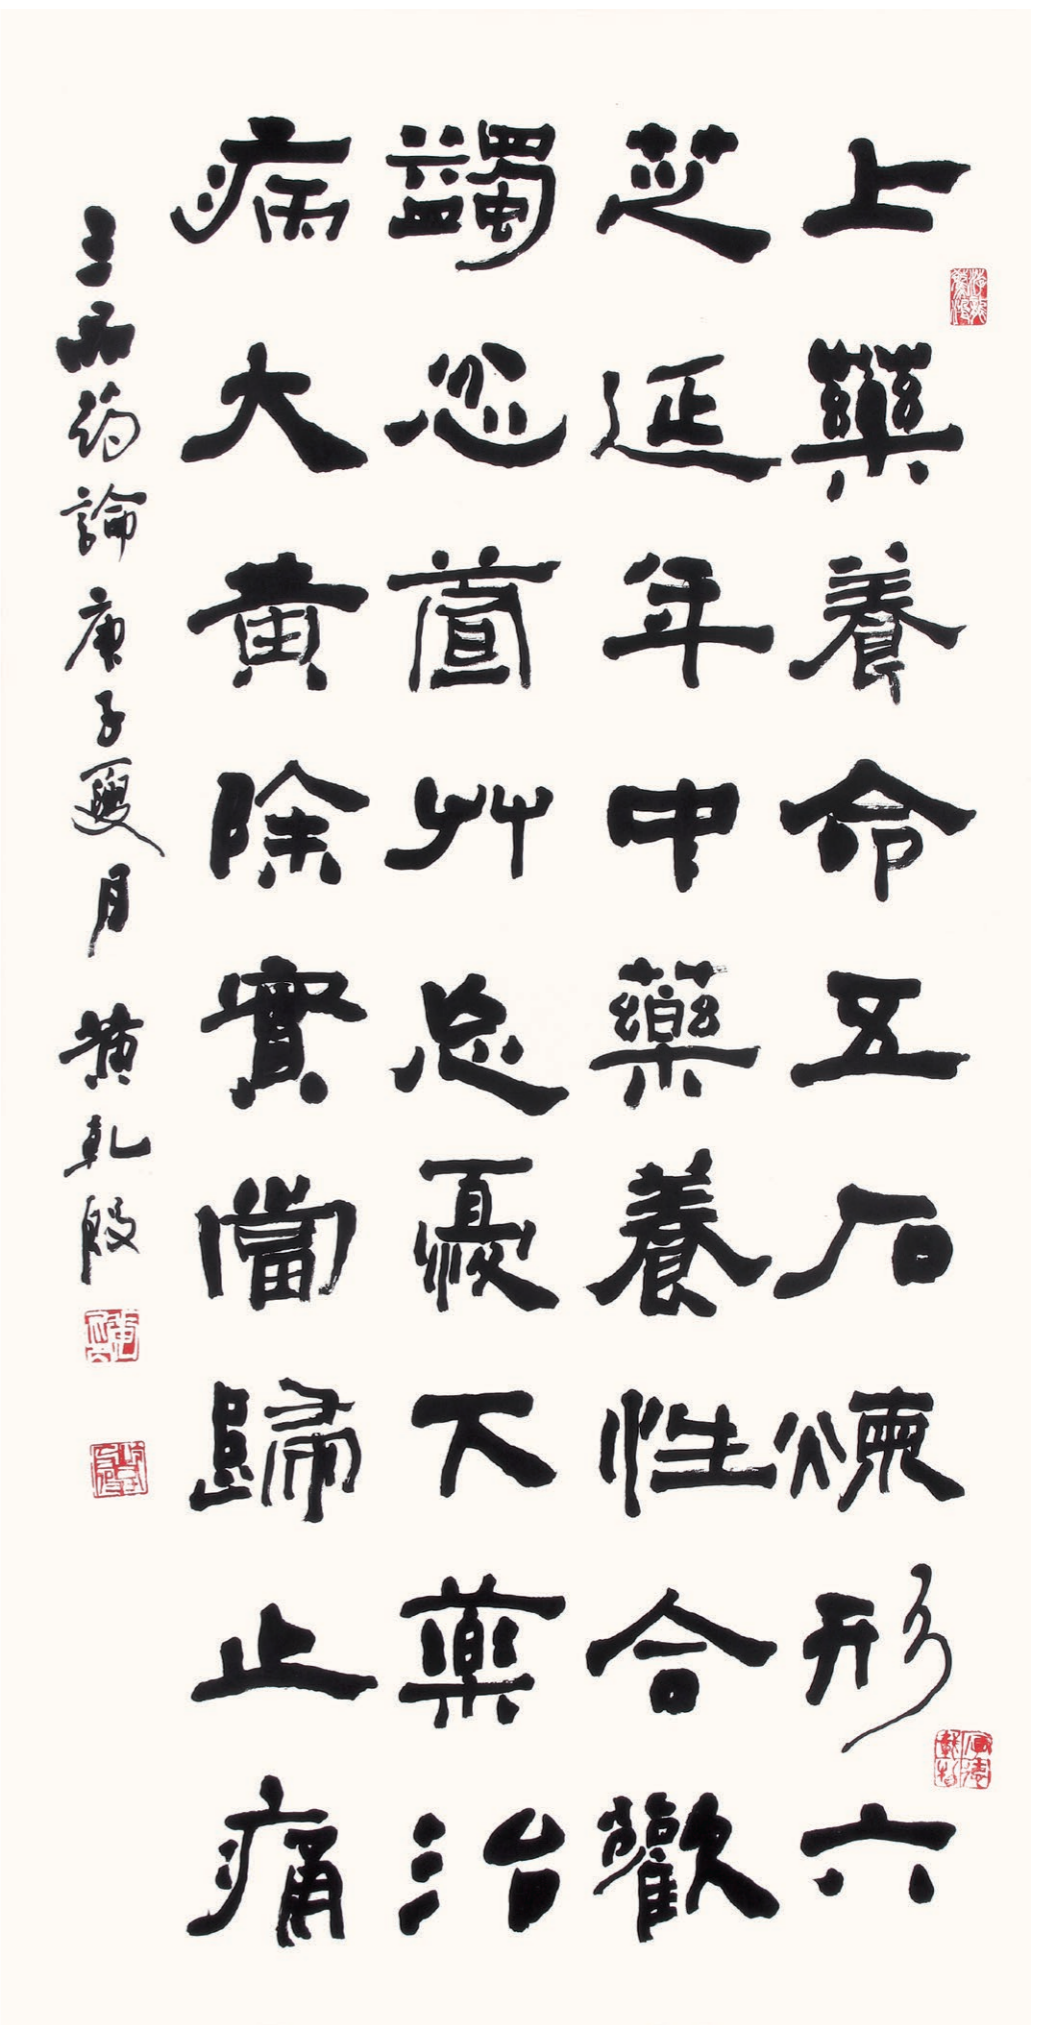 上藥養命五石煉形六
芝延年中藥養性合歡
蠲忿萱艸忘憂下藥治
病大黄除實當歸止痛
三品药論庚子夏月黄乾殷